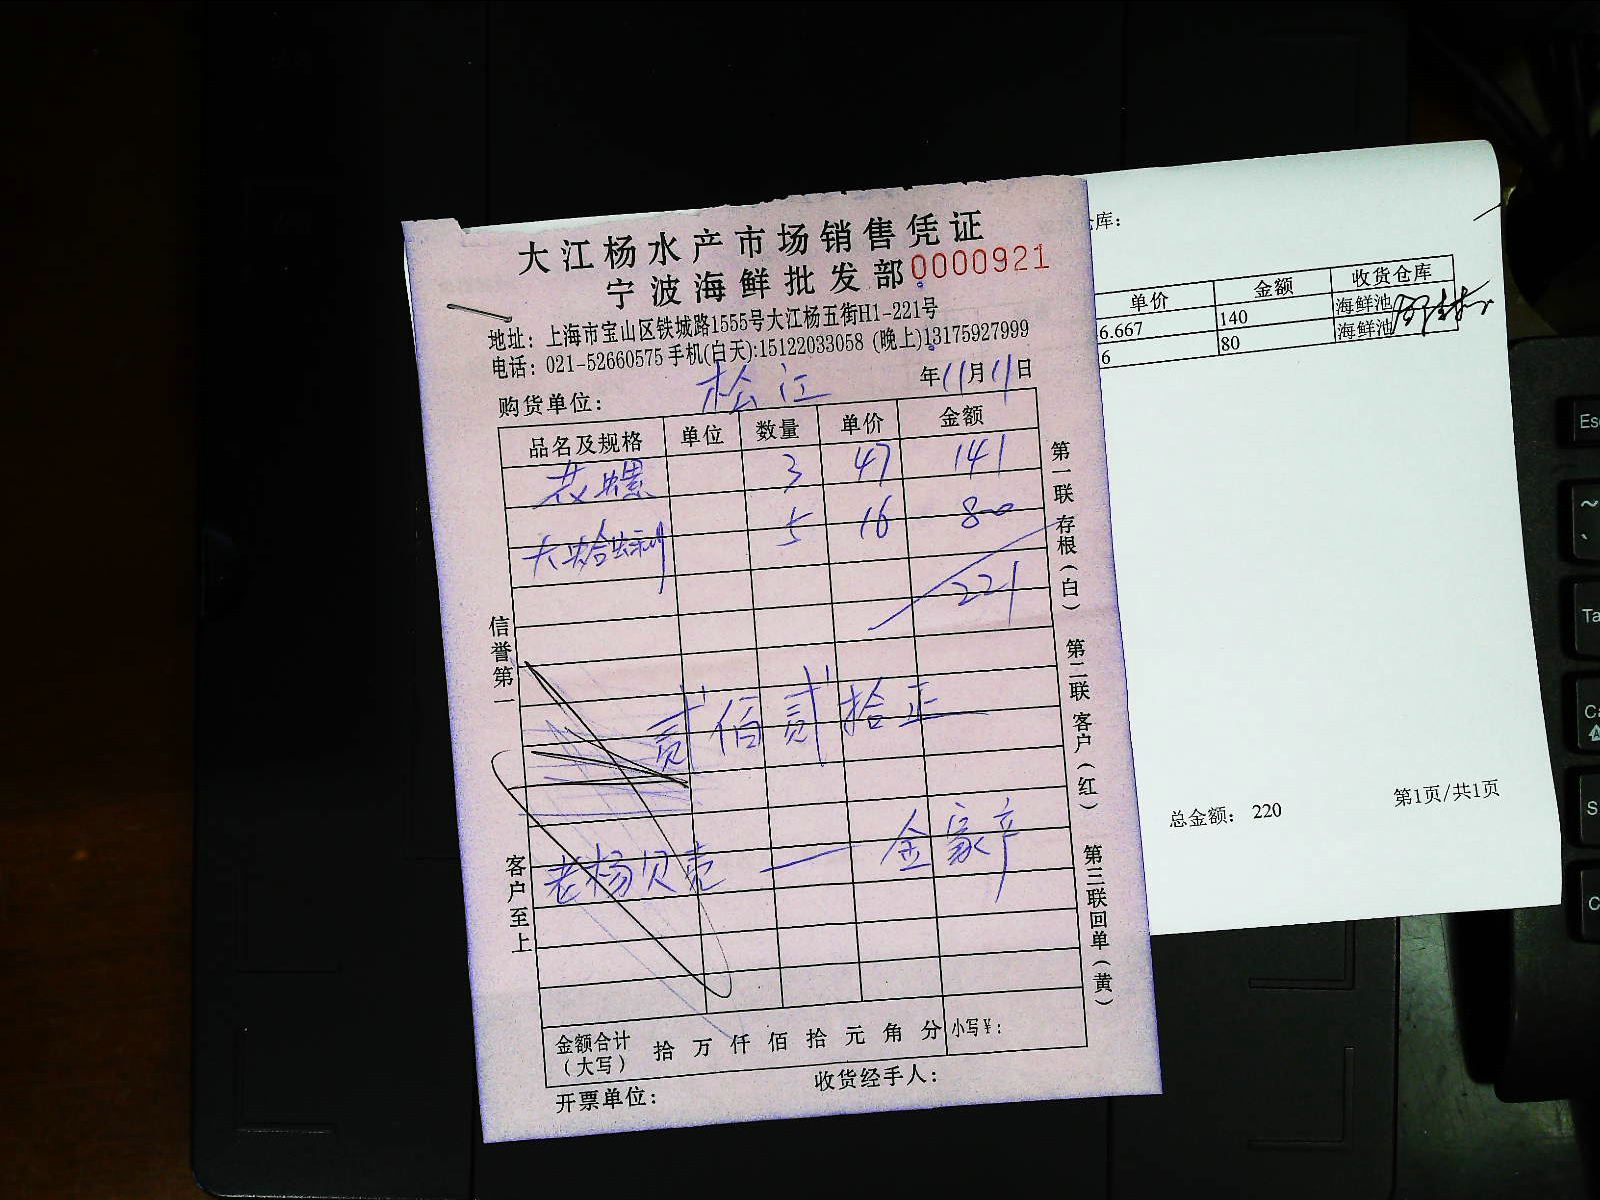 大江杨水产市场销售凭证
宁波海鲜批发部0000921
地址：上海市宝山区铁城路1555号大江杨五街H1-221号
电话：021-52660575 手机(白天):15122033058 (晚上)13175927999
购货单位： 松江 年11月11日
品名及规格 单位 数量 单价 金额
花螺 3 47 141
大蛤蜊 5 16 80
221
贰佰贰拾正
老杨贝壳 — 金家产
金额合计（大写） 拾 万 仟 佰 拾 元 角 分 小写¥：
开票单位： 收货经手人：
信誉第一
客户至上
第一联 存根（白）
第二联 客户（红）
第三联 回单（黄）
库：
单价 金额 收货仓库
6.667 140 海鲜池
6 80 海鲜池
总金额： 220
第1页/共1页
Esc
~
Ta
S
C